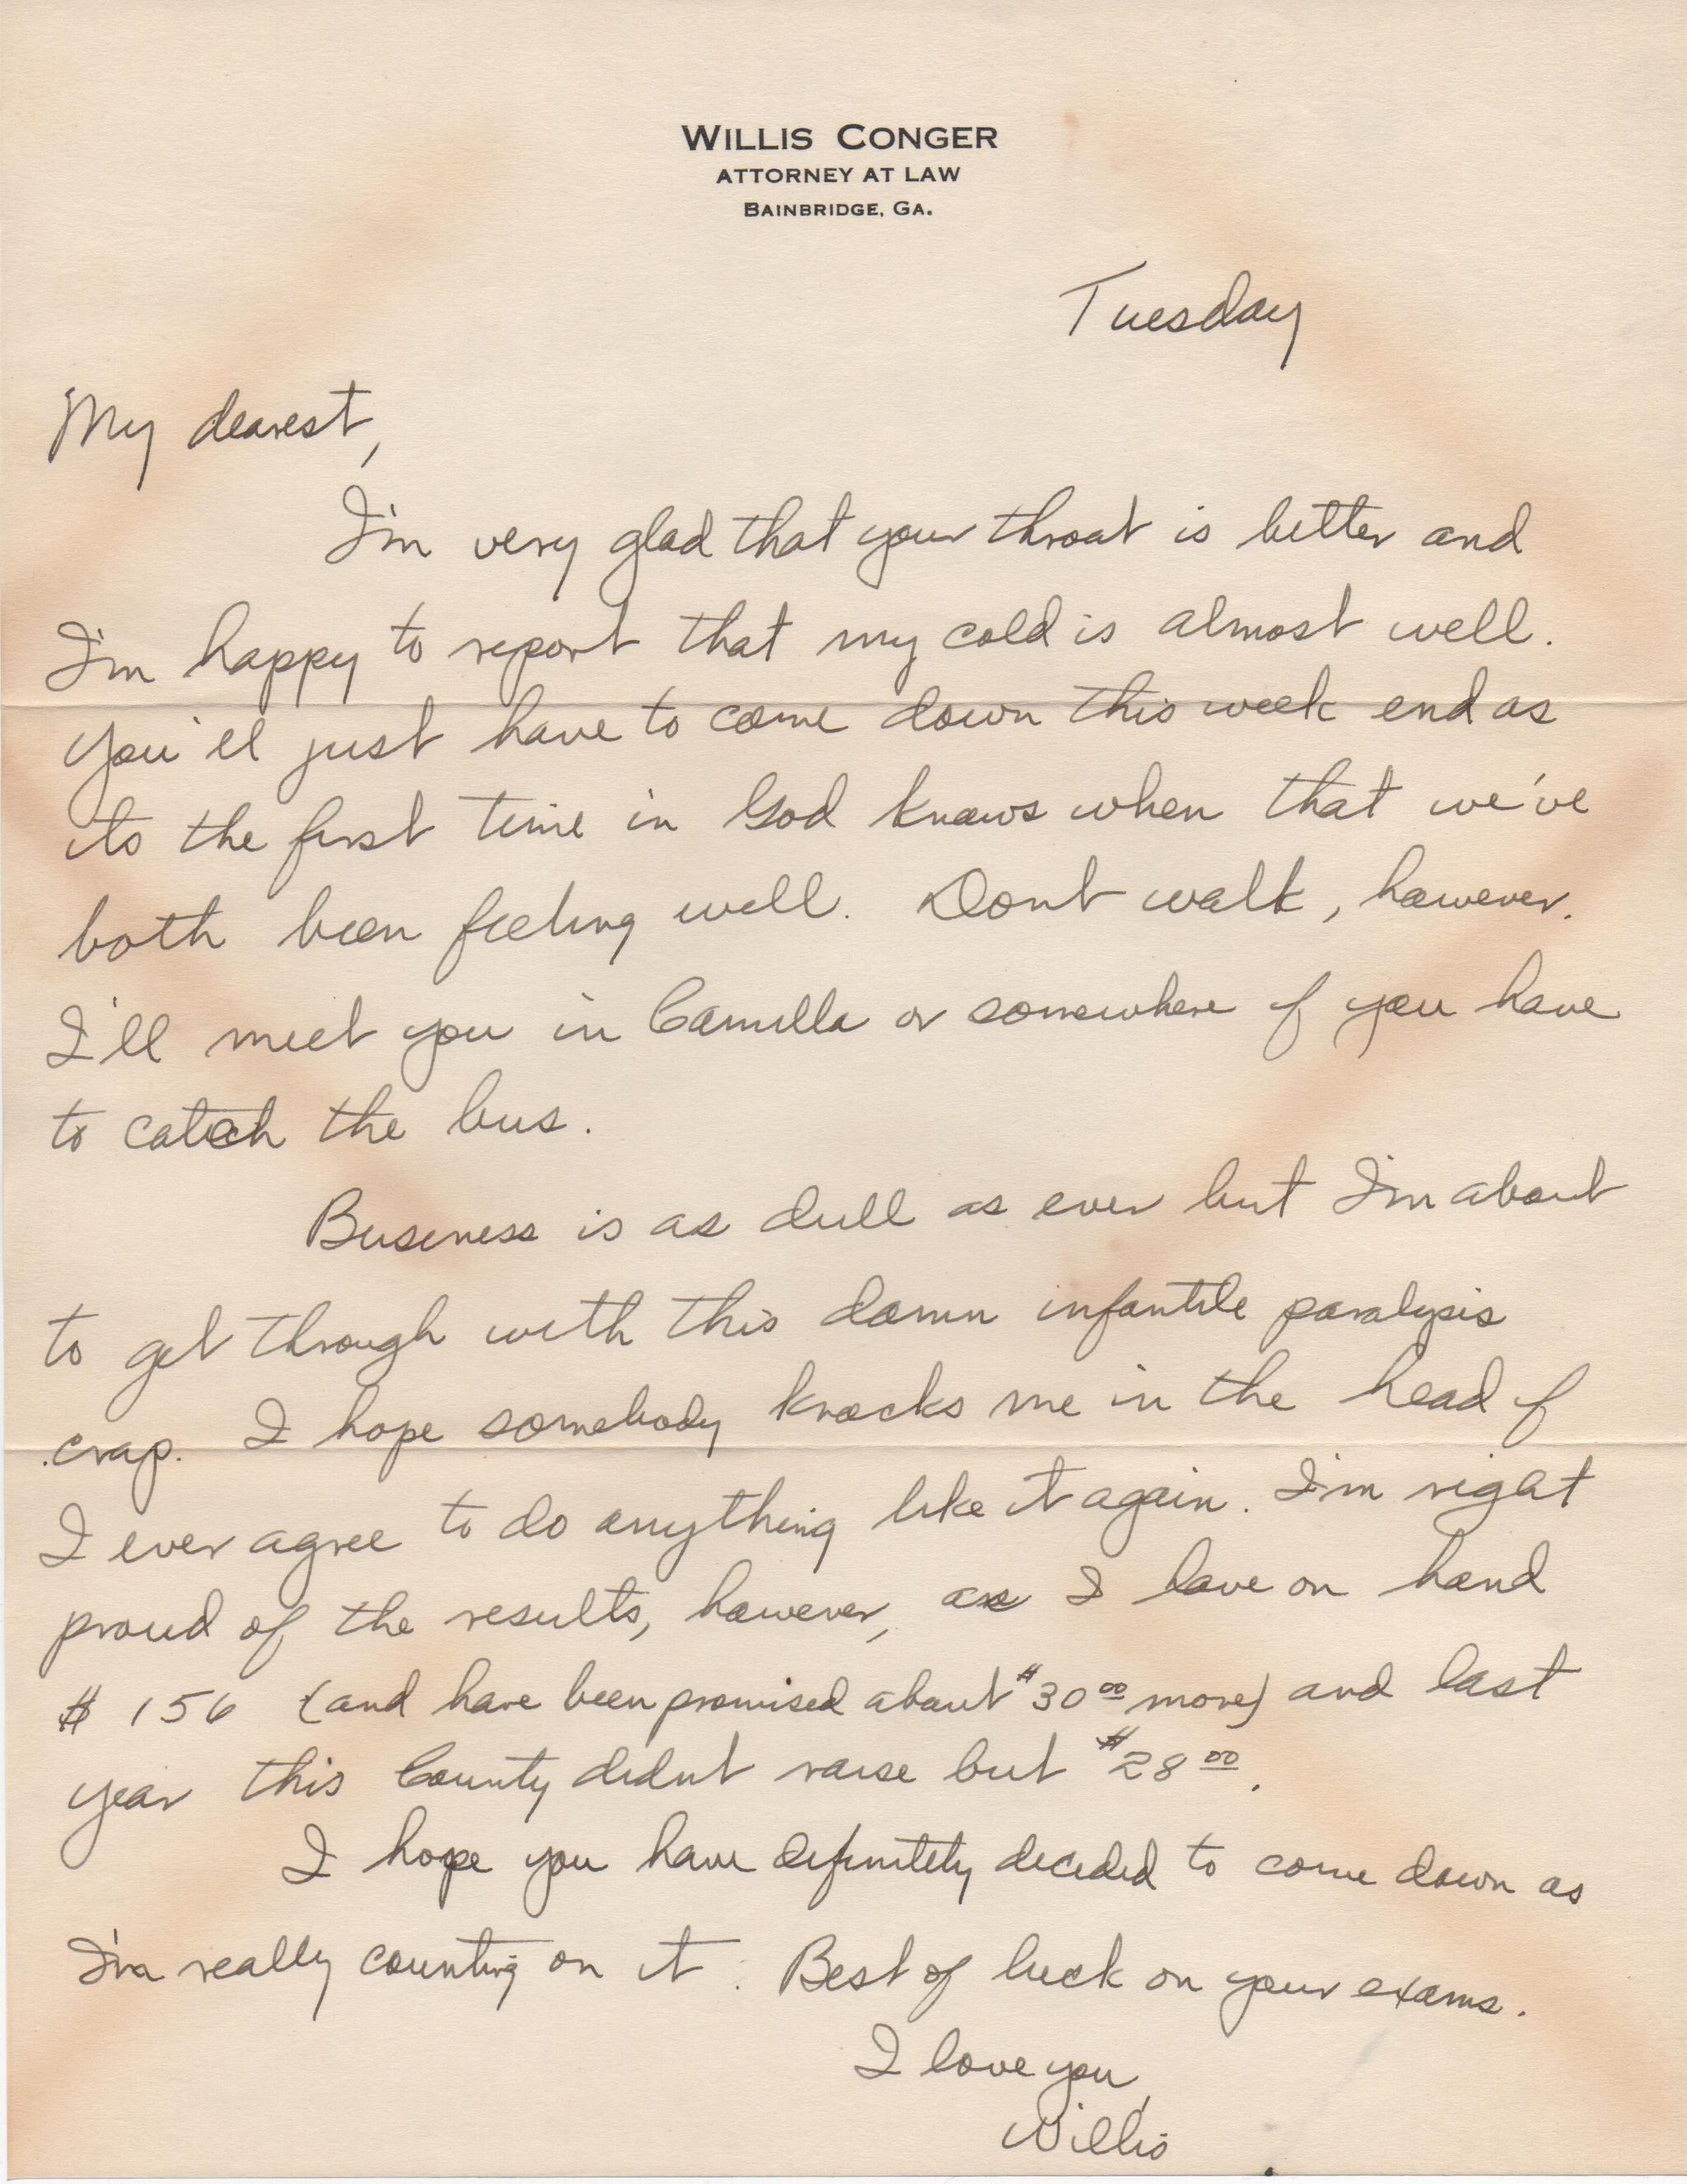 WILLIS CONGER
ATTORNEY AT LAW
BAINBRIDGE, GA.
Tuesday
My dearest,
I'm very glad that your throat is better and
I'm happy to report that my cold is almost well.
You'll just have to come down this week end as
its the first time in God knows when that we've
both been feeling well. Dont walk, however.
I'll meet you in Camilla or somewhere if you have
to catch the bus.
Business is as dull as ever but I'm about
to get through with this damn infantile paralysis
crap. I hope somebody knocks me in the head if
I ever agree to do anything like it again. I'm right
proud of the results, however, as I have on hand
$ 156 (and have been promised about $30 00 more) and last
year this County didnt raise but $28 00.
I hope you have definitely decided to come down as
I'm really counting on it. Best of luck on your exams.
I love you,
Willis